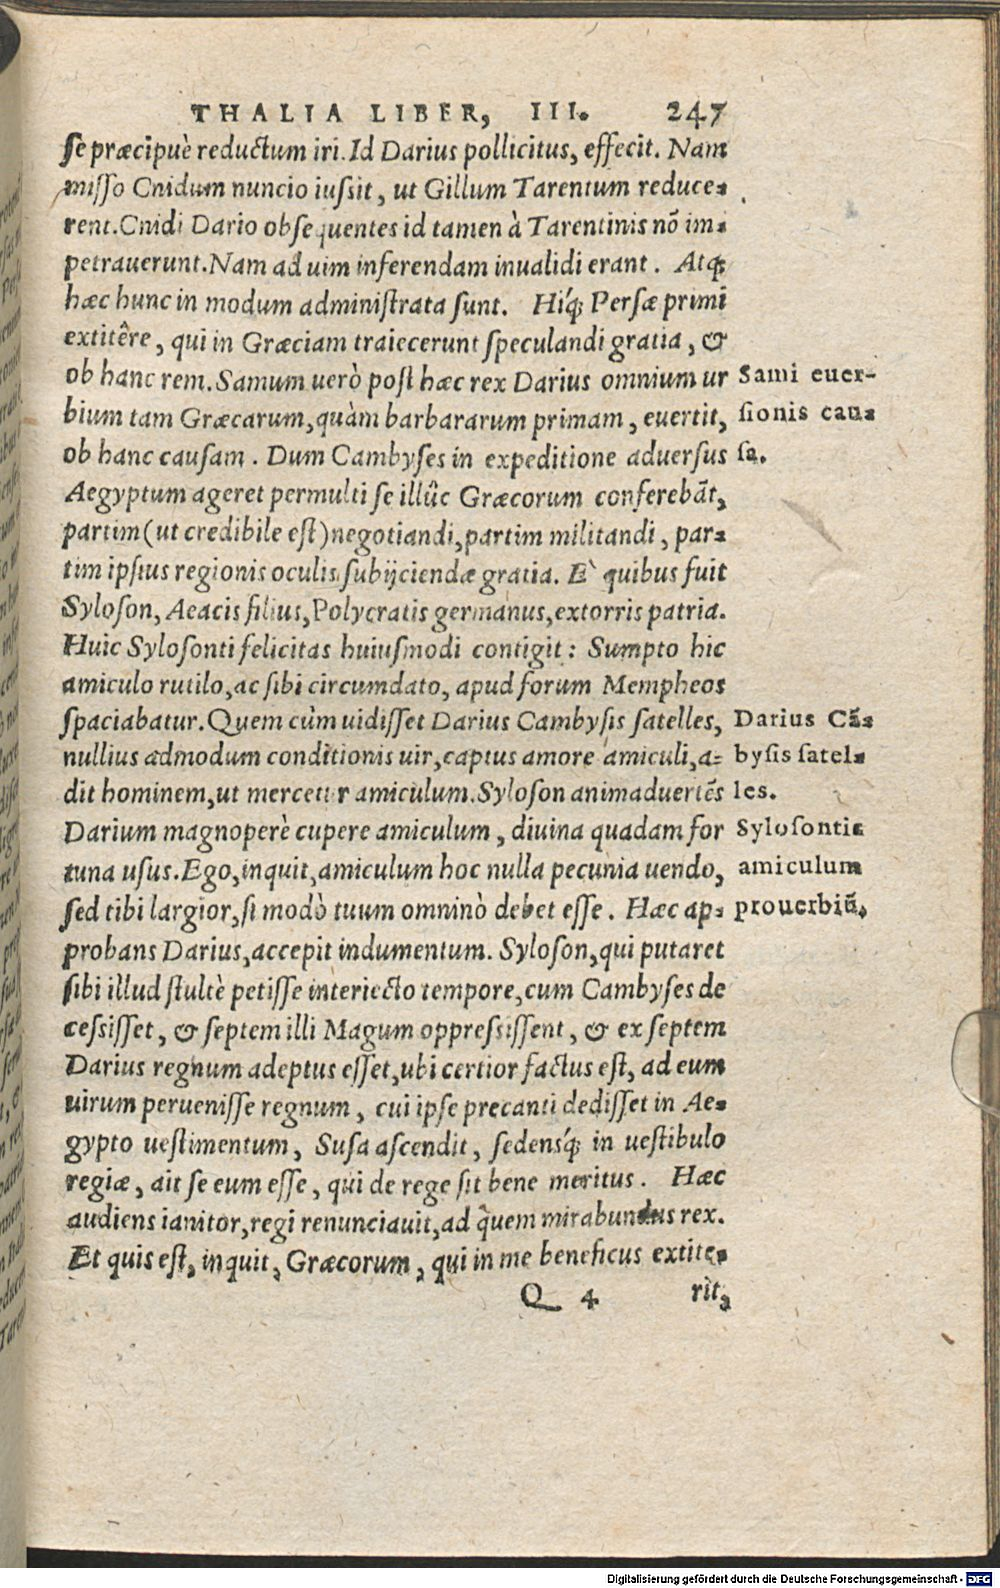 THALIA LIBER, III. 247
se præcipuè reductum iri. Id Darius pollicitus, effecit. Nam
misso Cnidum nuncio iussit, ut Gillum Tarentum reduce-
rent. Cnidi Dario obsequentes id tamen à Tarentinis nõ im-
petrauerunt. Nam ad uim inferendam inualidi erant. Atq́;
hæc hunc in modum administrata sunt. Hiq́; Persæ primi
extitêre, qui in Græciam traiecerunt speculandi gratia, &
ob hanc rem. Samum uerò post hæc rex Darius omnium ur
bium tam Græcarum, quàm barbararum primam, euertit,
ob hanc causam. Dum Cambyses in expeditione aduersus
Aegyptum ageret permulti se illûc Græcorum conferebãt,
partim (ut credibile est) negotiandi, partim militandi, par-
tim ipsius regionis oculis subijciendæ gratia. E` quibus fuit
Syloson, Aeacis filius, Polycratis germanus, extorris patria.
Huic Sylosonti felicitas huiusmodi contigit: Sumpto hic
amiculo rutilo, ac sibi circumdato, apud forum Mempheos
spaciabatur. Quem cùm uidisset Darius Cambysis satelles,
nullius admodum conditionis uir, captus amore amiculi, a-
dit hominem, ut mercetur amiculum. Syloson animaduertẽs
Darium magnoperè cupere amiculum, diuina quadam for
tuna usus. Ego, inquit, amiculum hoc nulla pecunia uendo,
sed tibi largior, si modò tuum omninò debet esse. Hæc ap-
probans Darius, accepit indumentum. Syloson, qui putaret
sibi illud stultè petisse interiecto tempore, cum Cambyses de
cessisset, & septem illi Magum oppressissent, & ex septem
Darius regnum adeptus esset, ubi certior factus est, ad eum
uirum peruenisse regnum, cui ipse precanti dedisset in Ae-
gypto uestimentum, Susa ascendit, sedensq́; in uestibulo
regiæ, ait se eum esse, qui de rege sit bene meritus. Hæc
audiens ianitor, regi renunciauit, ad quem mirabundus rex.
Et quis est, inquit, Græcorum, qui in me beneficus extite-
Q 4 rit,
Sami euer-
sionis cau-
sa.
Darius Cã-
bysis satel-
les.
Sylosontis
amiculum
prouerbiũ.
Digitalisierung gefördert durch die Deutsche Forschungsgemeinschaft - DFG